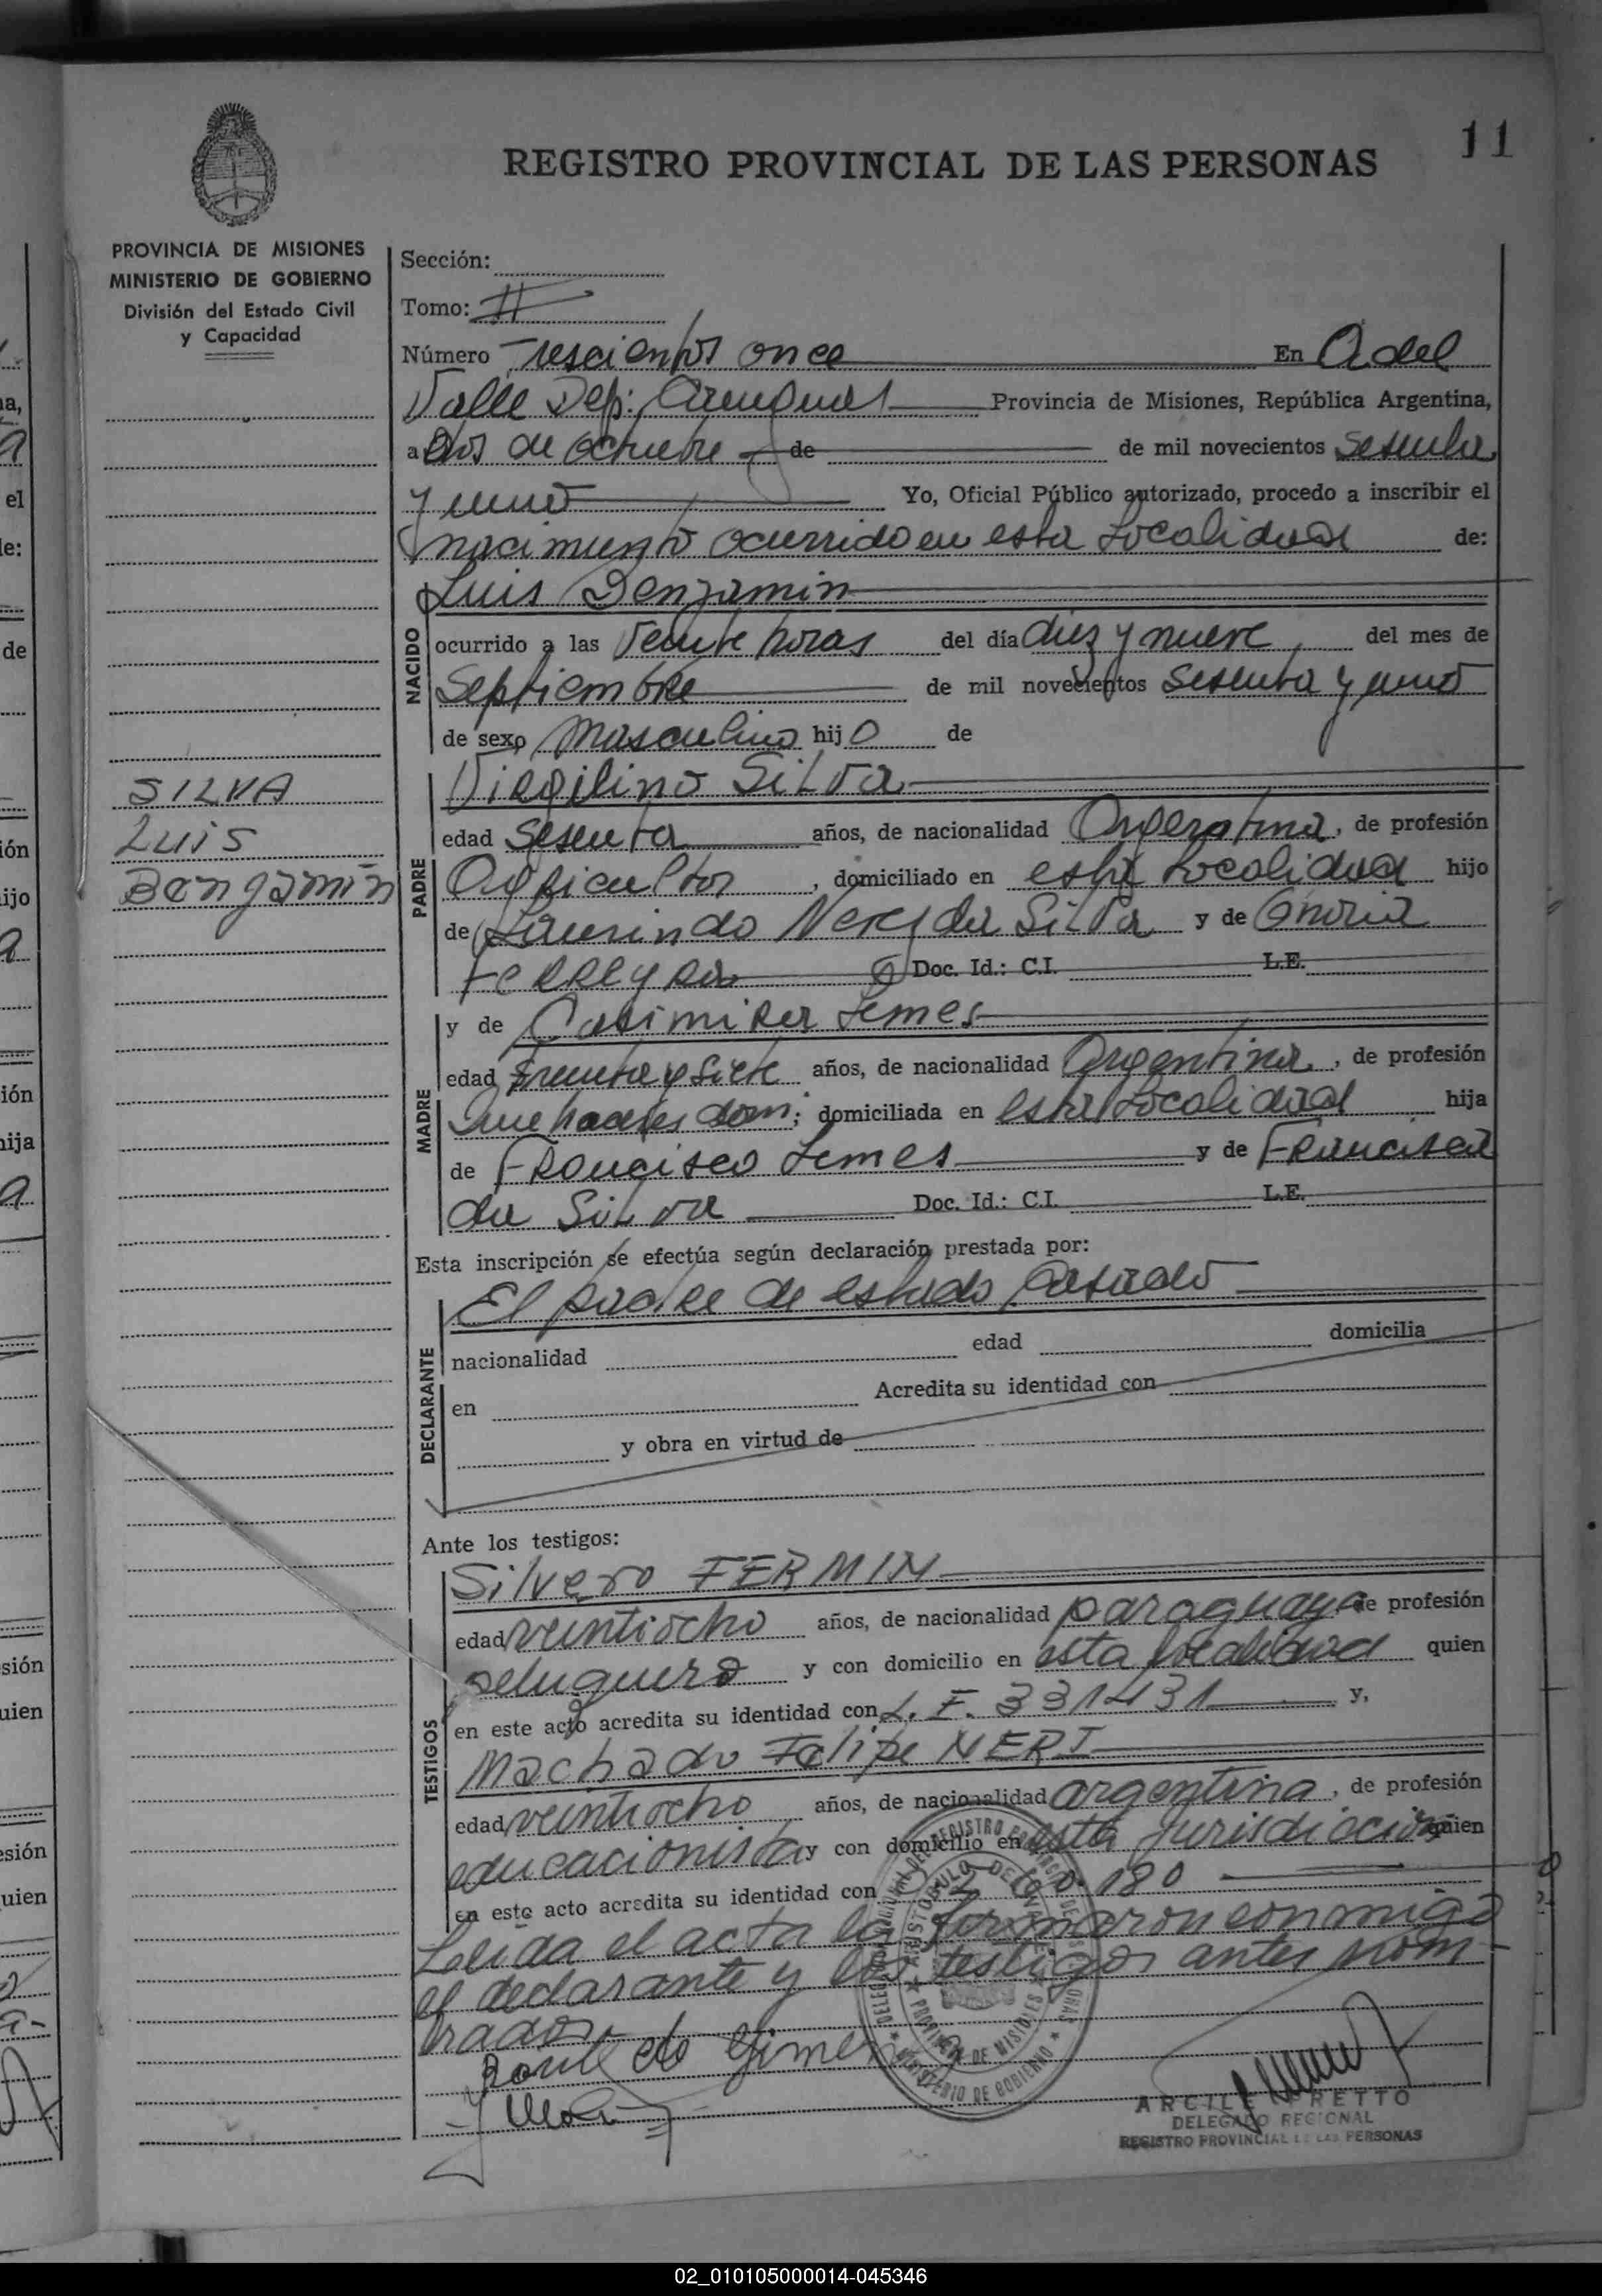 11
REGISTRO PROVINCIAL DE LAS PERSONAS
PROVINCIA DE MISIONES
MINISTERIO DE GOBIERNO
División del Estado Civil
y Capacidad
SILVA
LUIS
Benjamin
Sección:
Tomo: II
Número Trescientos once En A del
Valle Dep: Provincia de Misiones, República Argentina,
a Dos de Octubre de de mil novecientos Sesenta
y uno Yo, Oficial Público autorizado, procedo a inscribir el
nacimiento ocurrido en esta Localidad de:
NACIDO
Luis Benjamin
ocurrido a las Veinte horas del día diez y nueve del mes de
Septiembre de mil novecientos Sesenta y uno
de sexo Masculino hijo de
PADRE
Virgilino Silva
edad Sesenta años, de nacionalidad Argentina, de profesión
Agricultor, domiciliado en esta Localidad hijo
de Laurindo Neres da Silva y de Onoria
Ferreyra Doc. Id.: C.I. L.E.
MADRE
y de Casimira Lemes
edad treinta y siete años, de nacionalidad Argentina, de profesión
Quehaceres dom; domiciliada en esta Localidad hija
de Francisco Lemes y de Francisca
da Silva Doc. Id.: C.I. L.E.
Esta inscripción se efectúa según declaración prestada por:
DECLARANTE
El padre de estado Casado
nacionalidad edad domicilia
en Acredita su identidad con
y obra en virtud de
Ante los testigos:
TESTIGOS
Silvero FERMIN
edad veintiocho años, de nacionalidad paraguaya de profesión
peluquero y con domicilio en esta localidad quien
en este acto acredita su identidad con L.E. 331431 y,
Machado Felipe NERI
edad veintiocho años, de nacionalidad argentina, de profesión
educacionista y con domicilio en esta Jurisdicción quien
en este acto acredita su identidad con 180
Leida el acta la firmaron conmigo
el declarante y los testigos antes nom-
brados
DELEGADO REGIONAL
REGISTRO PROVINCIAL DE LAS PERSONAS
02_010105000014-045346